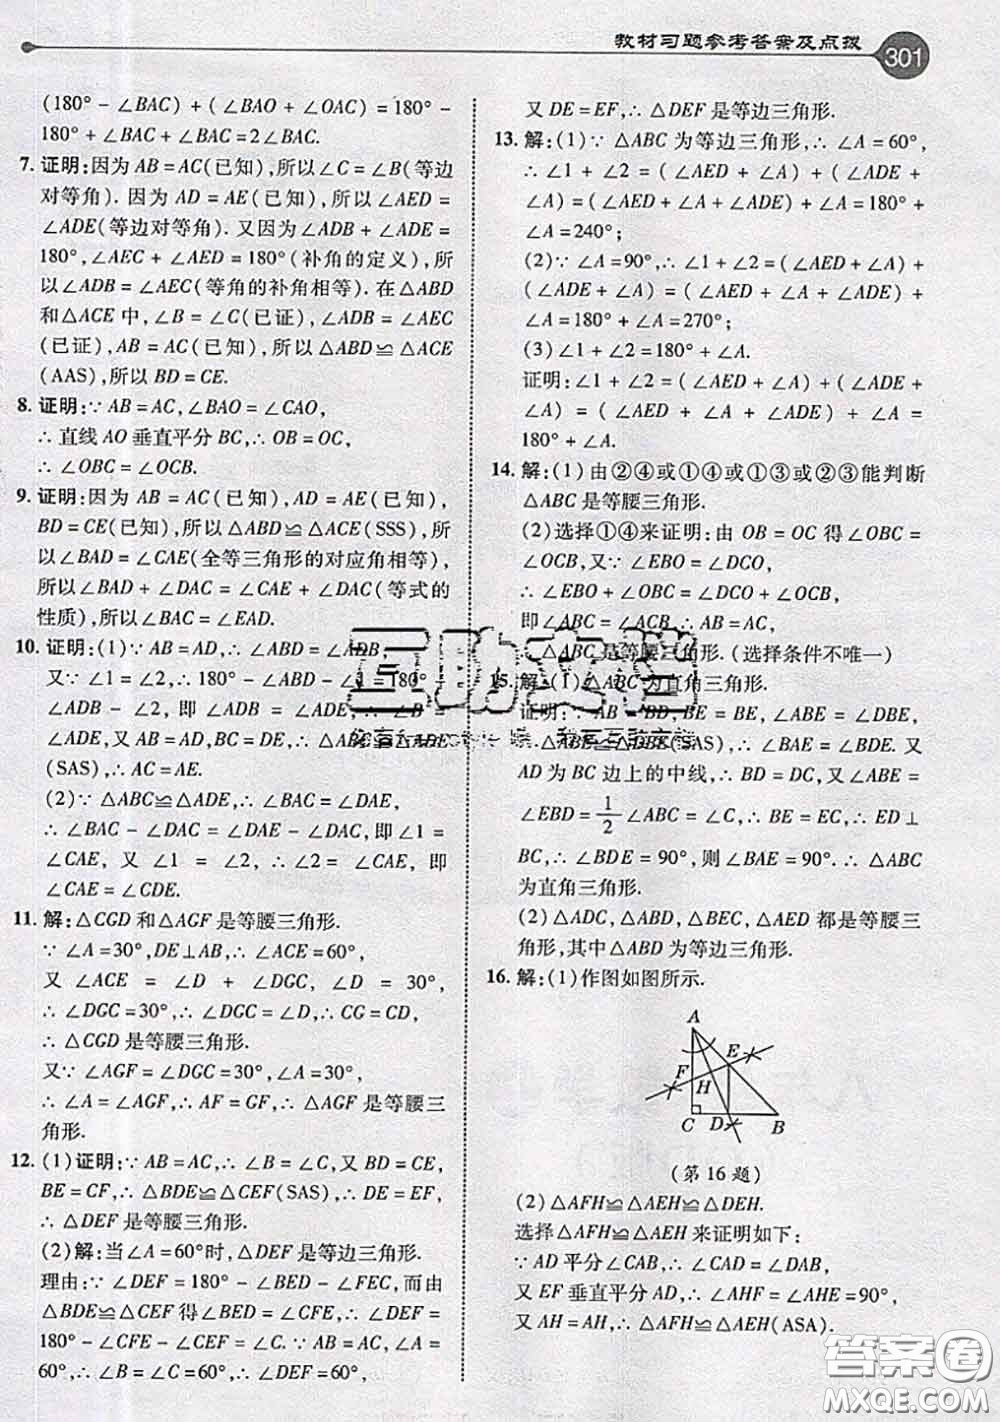 教材习题参考答案及点拨
301
(180° - ∠BAC) + (∠BAO + ∠OAC) = 180° -
180° + ∠BAC + ∠BAC = 2∠BAC.
7. 证明:因为 AB = AC(已知),所以∠C = ∠B(等边
对等角). 因为 AD = AE(已知),所以∠AED =
∠ADE(等边对等角). 又因为∠ADB + ∠ADE =
180°,∠AEC + ∠AED = 180°(补角的定义),所
以∠ADB = ∠AEC(等角的补角相等). 在△ABD
和△ACE 中,∠B = ∠C(已证),∠ADB = ∠AEC
(已证),AB = AC(已知),所以△ABD≌△ACE
(AAS),所以 BD = CE.
8. 证明:∵ AB = AC,∠BAO = ∠CAO,
∴ 直线 AO 垂直平分 BC,∴ OB = OC,
∴ ∠OBC = ∠OCB.
9. 证明:因为 AB = AC(已知),AD = AE(已知),
BD = CE(已知),所以△ABD≌△ACE(SSS),所
以∠BAD = ∠CAE(全等三角形的对应角相等),
所以∠BAD + ∠DAC = ∠CAE + ∠DAC(等式的
性质),所以∠BAC = ∠EAD.
10. 证明:(1)∵ AB = AD,∴ ∠ABD = ∠ADB,
又∵ ∠1 = ∠2,∴ 180° - ∠ABD - ∠1 = 180° -
∠ADB - ∠2,即∠ADB = ∠ADE,∴ ∠B =
∠ADE,又 AB = AD,BC = DE,∴ △ABC≌△ADE
(SAS),∴ AC = AE.
(2)∵ △ABC≌△ADE,∴ ∠BAC = ∠DAE,
∴ ∠BAC - ∠DAC = ∠DAE - ∠DAC,即∠1 =
∠CAE, 又 ∠1 = ∠2, ∴ ∠2 = ∠CAE, 即
∠CAE = ∠CDE.
11. 解:△CGD 和△AGF 是等腰三角形.
∵ ∠A = 30°,DE⊥AB,∴ ∠ACE = 60°,
又 ∠ACE = ∠D + ∠DGC, ∠D = 30°,
∴ ∠DGC = 30°,∴ ∠DGC = ∠D,∴ CG = CD,
∴ △CGD 是等腰三角形.
又∵ ∠AGF = ∠DGC = 30°,∠A = 30°,
∴ ∠A = ∠AGF,∴ AF = GF,∴ △AGF 是等腰三
角形.
12. (1)证明:∵ AB = AC,∴ ∠B = ∠C,又 BD = CE,
BE = CF,∴ △BDE≌△CEF(SAS),∴ DE = EF,
∴ △DEF 是等腰三角形.
(2)解:当∠A = 60°时,△DEF 是等边三角形.
理由:∵ ∠DEF = 180° - ∠BED - ∠FEC,而由
△BDE≌△CEF 得∠BED = ∠CFE,∴ ∠DEF =
180° - ∠CFE - ∠CEF = ∠C. ∵ AB = AC,∠A =
60°,∴ ∠B = ∠C = 60°,∴ ∠DEF = 60°,
又 DE = EF,∴ △DEF 是等边三角形.
13. 解:(1)∵ △ABC 为等边三角形,∴ ∠A = 60°,
∴ ∠1 + ∠2 = (∠AED + ∠A) + (∠ADE +
∠A) = (∠AED + ∠A + ∠ADE) + ∠A = 180° +
∠A = 240°;
(2)∵ ∠A = 90°,∴ ∠1 + ∠2 = (∠AED + ∠A) +
(∠ADE + ∠A) = (∠AED + ∠A + ∠ADE) +
∠A = 180° + ∠A = 270°;
(3)∠1 + ∠2 = 180° + ∠A.
证明:∠1 + ∠2 = (∠AED + ∠A) + (∠ADE +
∠A) = (∠AED + ∠A + ∠ADE) + ∠A =
180° + ∠A.
14. 解:(1)由②④或①④或①③或②③能判断
△ABC 是等腰三角形.
(2)选择①④来证明:由 OB = OC 得∠OBC =
∠OCB,又∵ ∠EBO = ∠DCO,
∴ ∠EBO + ∠OBC = ∠DCO + ∠OCB,
即∠ABC = ∠ACB,∴ AB = AC,
∴ △ABC 是等腰三角形. (选择条件不唯一)
15. 解:(1)△ABC 为直角三角形.
证明:∵ AB = BD,BE = BE,∠ABE = ∠DBE,
∴ △ABE≌△DBE(SAS),∴ ∠BAE = ∠BDE. 又
AD 为 BC 边上的中线,∴ BD = DC,又∠ABE =
∠EBD = 1/2∠ABC = ∠C,∴ BE = EC,∴ ED⊥
BC,∴ ∠BDE = 90°,则∠BAE = 90°.∴ △ABC
为直角三角形.
(2)△ADC,△ABD,△BEC,△AED 都是等腰三
角形,其中△ABD 为等边三角形.
16. 解:(1)作图如图所示.
A
E
F
H
C
D
B
(第 16 题)
(2)△AFH≌△AEH≌△DEH.
选择△AFH≌△AEH 来证明如下:
∵ AD 平分∠CAB,∴ ∠CAD = ∠DAB,
又 EF 垂直平分 AD,∴ ∠AHF = ∠AHE = 90°,
又 AH = AH,∴ △AFH≌△AEH(ASA).
答案圈
MXQE.COM